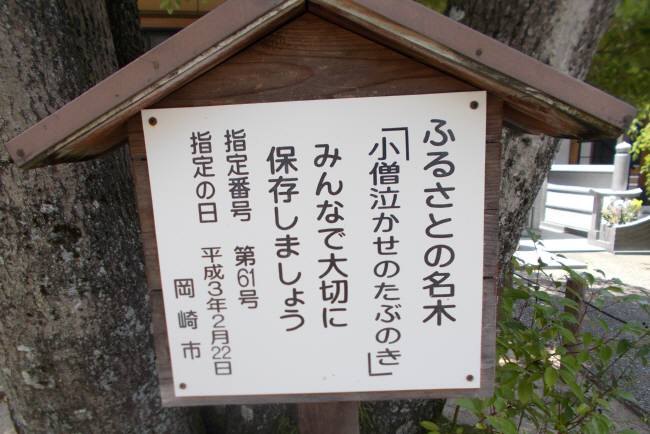 ふるさとの名木
「小僧泣かせのたぶのき」
みんなで大切に
保存しましょう
指定番号 第61号
指定の日 平成3年2月22日
岡崎市